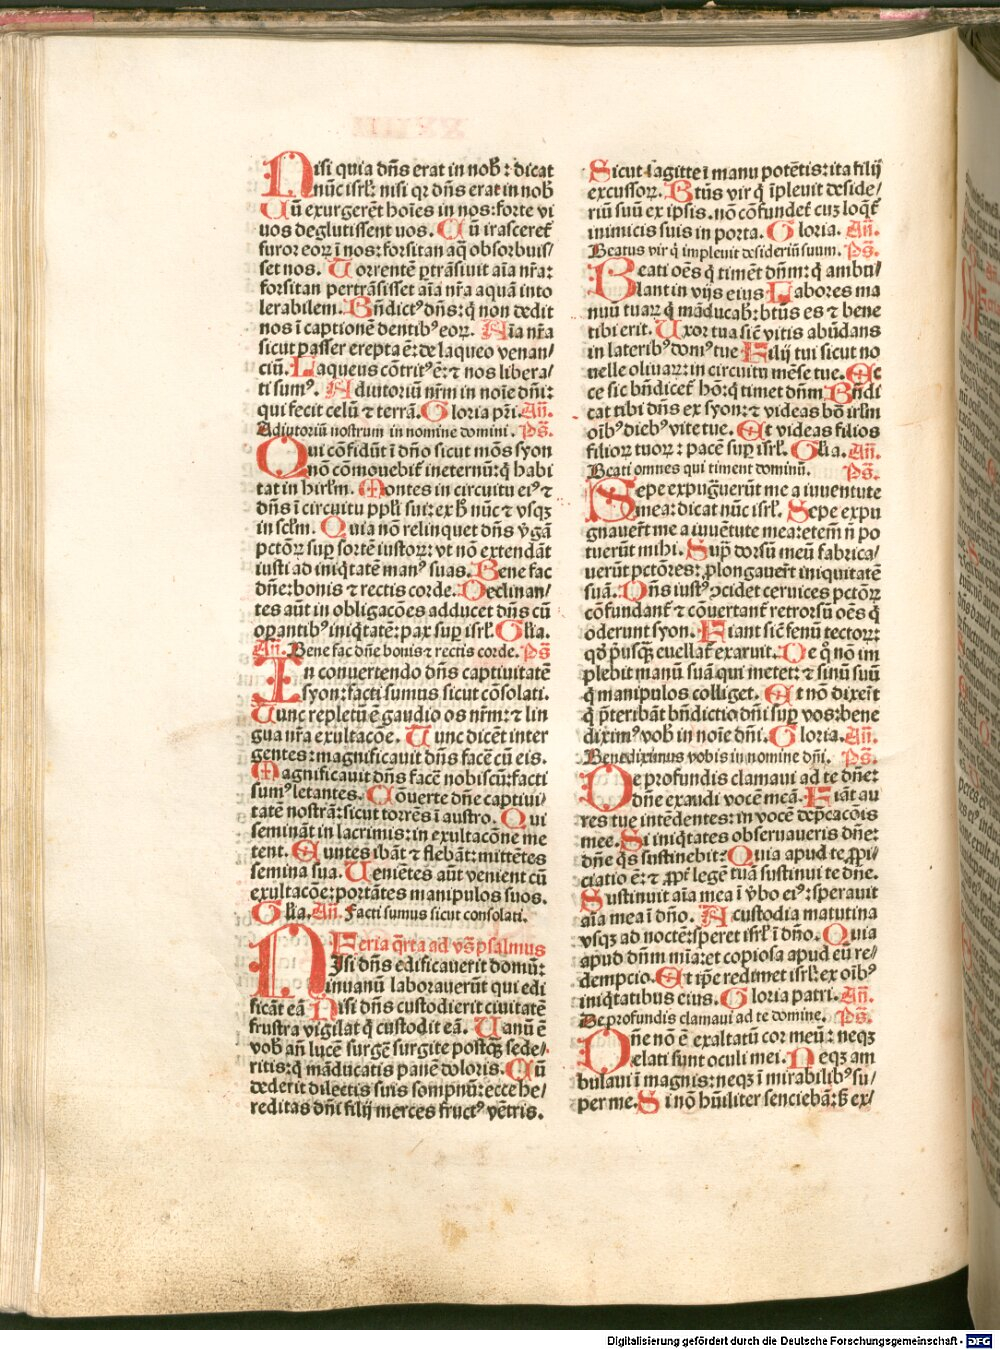 Nisi quia dn̄s erat in nob̄: dicat
nūc isrl̄: nisi qꝛ dn̄s erat in nob̄
Cū exurgerēt hoīes in nos: forte vi
uos deglutissent uos. Cū irasceret̄
furor eoꝝ ī nos: forsitan aq̄ obsorbuis/
set nos. Torrentē ꝑtrāsiuit aīa nr̄a:
forsitan pertrāsisset aīa nr̄a aquā into
lerabilem. Bn̄dictꝰ dn̄s: q̄ non dedit
nos ī captionē dentibꝰ eoꝝ. Aīa nr̄a
sicut passer erepta ē: de laqueo venan/
ciū. Laqueus cōtritꝰ ē: ⁊ nos libera/
ti sumꝰ. Adiutoriū nr̄m in noīe dn̄i:
qui fecit celū ⁊ terrā. Gloria pr̄i. An̄.
Adiutoriū nostrum in nomine domini. Ps̄.
Qui cōfidūt ī dn̄o sicut mōs syon
nō cōmouebit̄ ineternū: q̄ habi
tat in hirl̄m. Montes in circuitu eiꝰ ⁊
dn̄s ī circuitu ppl̄i sui: ex h̄ nūc ⁊ vsqꝫ
in scl̄m. Quia nō relinquet dn̄s v̄gā
pctōꝝ suꝑ sortē iustoꝝ: vt nō extendāt
iusti ad iniq̄tatē manꝰ suas. Bene fac
dn̄e: bonis ⁊ rectis corde. Declinan/
tes aūt in obligacōes adducet dn̄s cū
oꝑantibꝰ iniq̄tatē: pax suꝑ isrl̄. Glīa.
An̄. Bene fac dn̄e bonis ⁊ rectis corde. Ps̄
In conuertendo dn̄s captiuitatē
syon: facti sumus sicut cōsolati.
Tunc repletū ē gaudio os nr̄m: ⁊ lin
gua nr̄a exultacōe. Tunc dicēt inter
gentes: magnificauit dn̄s facē cū eis.
Magnificauit dn̄s facē nobiscū: facti
sumꝰ letantes. Cōuerte dn̄e captiui/
tatē nostrā: sicut torrēs ī austro. Qui
semināt in lacrimis: in exultacōne me
tent. Euntes ibāt ⁊ flebāt: mittētes
semina sua. Ueniētes aūt venient cū
exultacōe: portātes manipulos suos.
Glīa. An̄. Facti sumus sicut consolati.
Feria q̄rta ad vs̄ psalmus
Nisi dn̄s edificauerit domū:
inuanū laborauerūt qui edi
ficāt eā Nisi dn̄s custodierit ciuitatē
frustra vigilat q̄ custodit eā. Uanū ē
vob̄ an̄ lucē surgē surgite postqꝫ sede/
ritis: q̄ māducatis panē doloris. Cū
dederit dilectis suis sompnū: ecce he/
reditas dn̄i filij merces fructꝰ vētris.
Sicut sagitte ī manu potētis: ita filij
excussoꝝ. Btūs vir q̄ īpleuit deside/
riū suū ex ipsis. nō cōfundet̄ cuꝫ loq̄t̄
inimicis suis in porta. Gloria. An̄.
Beatus vir q̄ impleuit desideriū suum. Ps̄.
Beati oēs q̄ timēt dn̄m: q̄ ambu/
lant in vijs eius Labores ma
nuū tuaꝝ q̄ māducab̄: btūs es ⁊ bene
tibi erit. Uxor tua sic̄ vitis abūdans
in lateribꝰ domꝰ tue Filij tui sicut no
uelle oliuaꝝ: in circuitu mēse tue. Ec
ce sic bn̄dicet̄ hō: q̄ timet dn̄m Bn̄di
cat tibi dn̄s ex syon: ⁊ videas bō irl̄m
oībꝰ diebꝰ vite tue. Et videas filios
filioꝝ tuoꝝ: pacē suꝑ isrl̄. Glīa. An̄.
Beati omnes qui timent dominū. Ps̄.
Sepe expugnerūt me a iuuentute
mea: dicat nūc isrl̄. Sepe expu
gnauer̄t me a iuuētute mea: etem̄ n̄ po
tuerūt mihi. Suꝑ dorsū meū fabrica/
uerūt pctōres: ꝓlongauer̄t iniquitatē
suā. Dn̄s iustꝰ ↄcidet ceruices pctōꝝ
cōfundant̄ ⁊ cōuertant̄ retrorsū oēs q̄
oderunt syon. Fiant sic̄ fenū tectoꝝ:
qd̄ p̄usqꝫ euellat̄ exaruit. De q̄ nō im
plebit manū suā qui metet: ⁊ sinū suū
q̄ manipulos colliget. Et nō dixer̄t
q̄ p̄teribāt bn̄dictio dn̄i suꝑ vos: bene
diximꝰ vob̄ in noīe dn̄i. Gloria. An̄.
Benediximus vobis in nomine dn̄i. Ps̄.
De profundis clamaui ad te dn̄e:
dn̄e exaudi vocē meā. Fiāt au
res tue intēdentes: in vocē dep̄cacōis
mee. Si iniq̄tates obseruaueris dn̄e:
dn̄e q̄s sustinebit: Quia apud te ꝓpi/
ciatio ē: ⁊ ꝓpt̄ legē tuā sustinui te dn̄e.
Sustinuit aīa mea ī v̄bo eiꝰ: sperauit
aīa mea ī dn̄o. A custodia matutina
vsqꝫ ad noctē: speret isrl̄ ī dn̄o. Quia
apud dn̄m mīa: et copiosa apud eū re/
dempcio. Et ip̄e redimet isrl̄: ex oībꝰ
iniq̄tatibus eius. Gloria patri. An̄.
De profundis clamaui ad te domine. Ps̄.
Dn̄e nō ē exaltatū cor meū: neqꝫ
elati sunt oculi mei. Neqꝫ am
bulaui ī magnis: neqꝫ ī mirabilibꝰ su/
per me. Si nō hūiliter senciebā: s̄ ex/
Digitalisierung gefördert durch die Deutsche Forschungsgemeinschaft - DFG